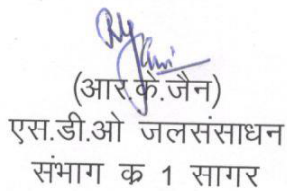 (आर.के.जैन)
एस.डी.ओ जलसंसाधन
संभाग क्र 1 सागर